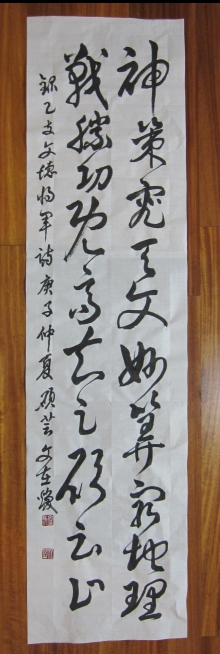 神策究天文妙算窮地理
戰勝功既高知足願云止
錄乙支文德將軍詩庚子仲夏碩芸文在賢